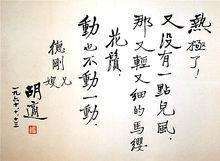 熱極了！
又没有一點兒風，
那又輕又細的馬纓
花鬚
動也不動一動。
德剛兄
嫂
胡適
一九六十、十、三